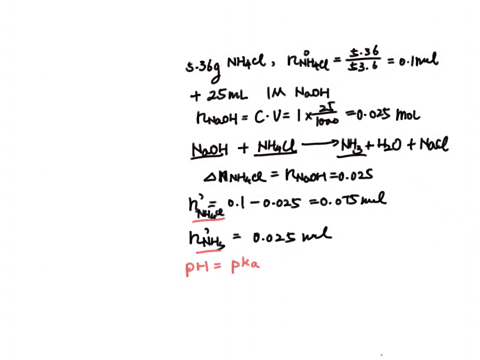 5.36g NH4Cl, n°NH4Cl = 5.36/53.6 = 0.1mol
+ 25mL 1M NaOH
nNaOH = C·V = 1 × 25/1000 = 0.025 mol
NaOH + NH4Cl ⟶ NH3 + H2O + NaCl
ΔnNH4Cl = nNaOH = 0.025
n'NH4Cl = 0.1 - 0.025 = 0.075 mol
n'NH3 = 0.025 mol
pH = pka